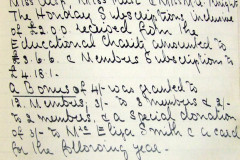 The Monday Subscriptions inclusive
of £2.0.0 received from the
Educational Charity amounted to
£3.6.6. & Members Subscriptions to
£4.18.1.
A Bonus of 4/- was granted to
12 Members, 3/- to 3 members & 2/-
to 2 members, & a Special donation
of 5/- to Mrs Eliza Smith & a card
for the following year.